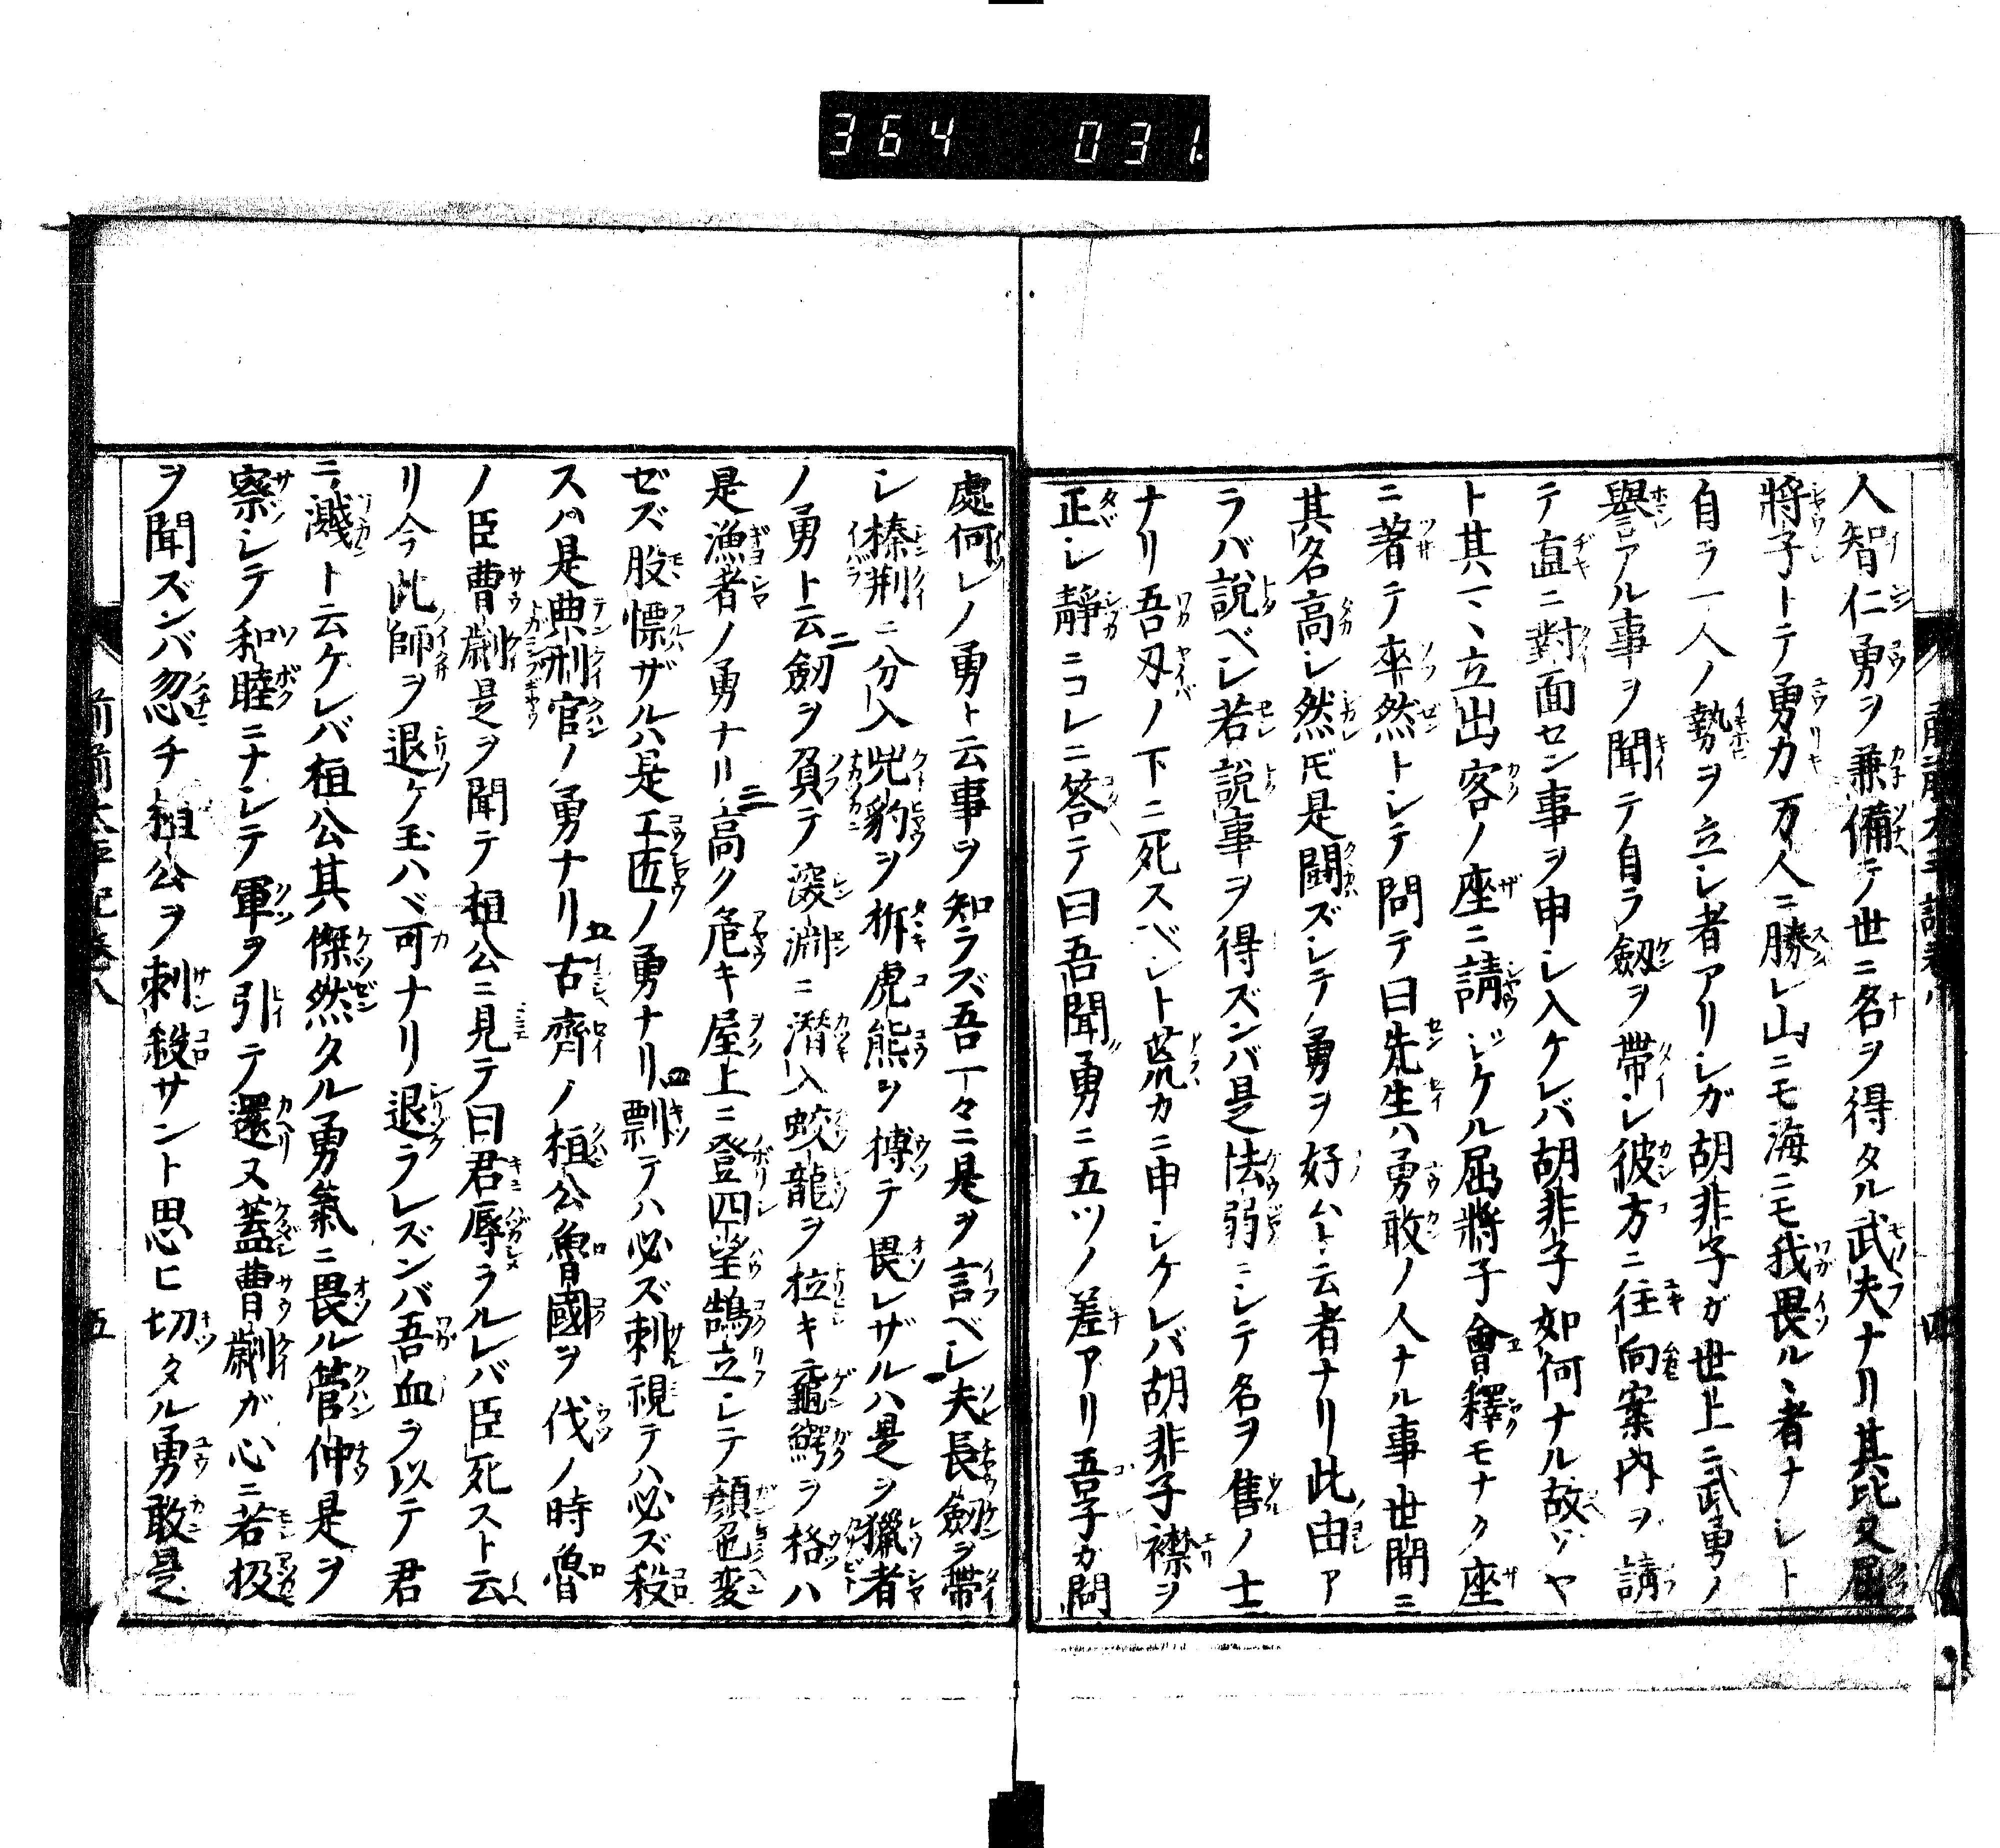 364 031
人智仁勇ヲ兼備テ世ニ名ヲ得タル武夫ナリ其比又屈
將子トテ勇力万人ニ勝レ山ニモ海ニモ我畏ルヽ者ナシト
自ラ一人ノ勢ヲ立シ者アリシガ胡非子ガ世上ニ武勇ノ
譽アル事ヲ聞テ自ラ劔ヲ帶シ彼方ニ往向案内ヲ請
テ直ニ對面セン事ヲ申シ入ケレバ胡非子如何ナル故ゾヤ
ト其マヽ立出客ノ座ニ請ジケル屈將子會釋モナク座
ニ著テ卒然トシテ問テ曰先生ハ勇敢ノ人ナル事世間ニ
其名高シ然ㇳモ是鬪ズシテ勇ヲ好ムト云者ナリ此由ア
ラバ説ベシ若説事ヲ得ズンバ是怯弱ニシテ名ヲ售ノ士
ナリ吾刃ノ下ニ死スベシト荒カニ申シケレバ胡非子襟ヲ
正シ靜ニコレニ答テ曰吾聞勇ニ五ツノ差アリ吾子カ問
處何レノ勇ト云事ヲ知ラズ吾一々ニ是ヲ言ベシ夫長劔ヲ帶
シ榛荆ニ分入兕豹ヲ柝虎熊ヲ搏テ畏レザルハ是ヲ獵者
ノ勇ト云二劔ヲ負テ深淵ニ潛入蛟龍ヲ拉キ黿鰐ヲ格ハ
是漁者ノ勇ナリ三高ク危キ屋上ニ登四望鵠立シテ顔色変
ゼズ股慓ザルハ是工匠ノ勇ナリ四剽テハ必ズ刺視テハ必ズ殺
スハ是典刑官ノ勇ナリ五古齊ノ桓公魯國ヲ伐ノ時魯
ノ臣曹劌是ヲ聞テ桓公ニ見テ曰君辱ラルレバ臣死スト云
リ今此師ヲ退ケ玉ハヾ可ナリ退ラレズンバ吾血ヲ以テ君
ニ濺ト云ケレバ桓公其傑然タル勇氣ニ畏ル管仲是ヲ
察シテ和睦ニナシテ軍ヲ引テ還又蓋曹劌ガ心ニ若扱
ヲ聞ズンバ忽チ桓公ヲ刺殺サント思ヒ切タル勇敢是
五